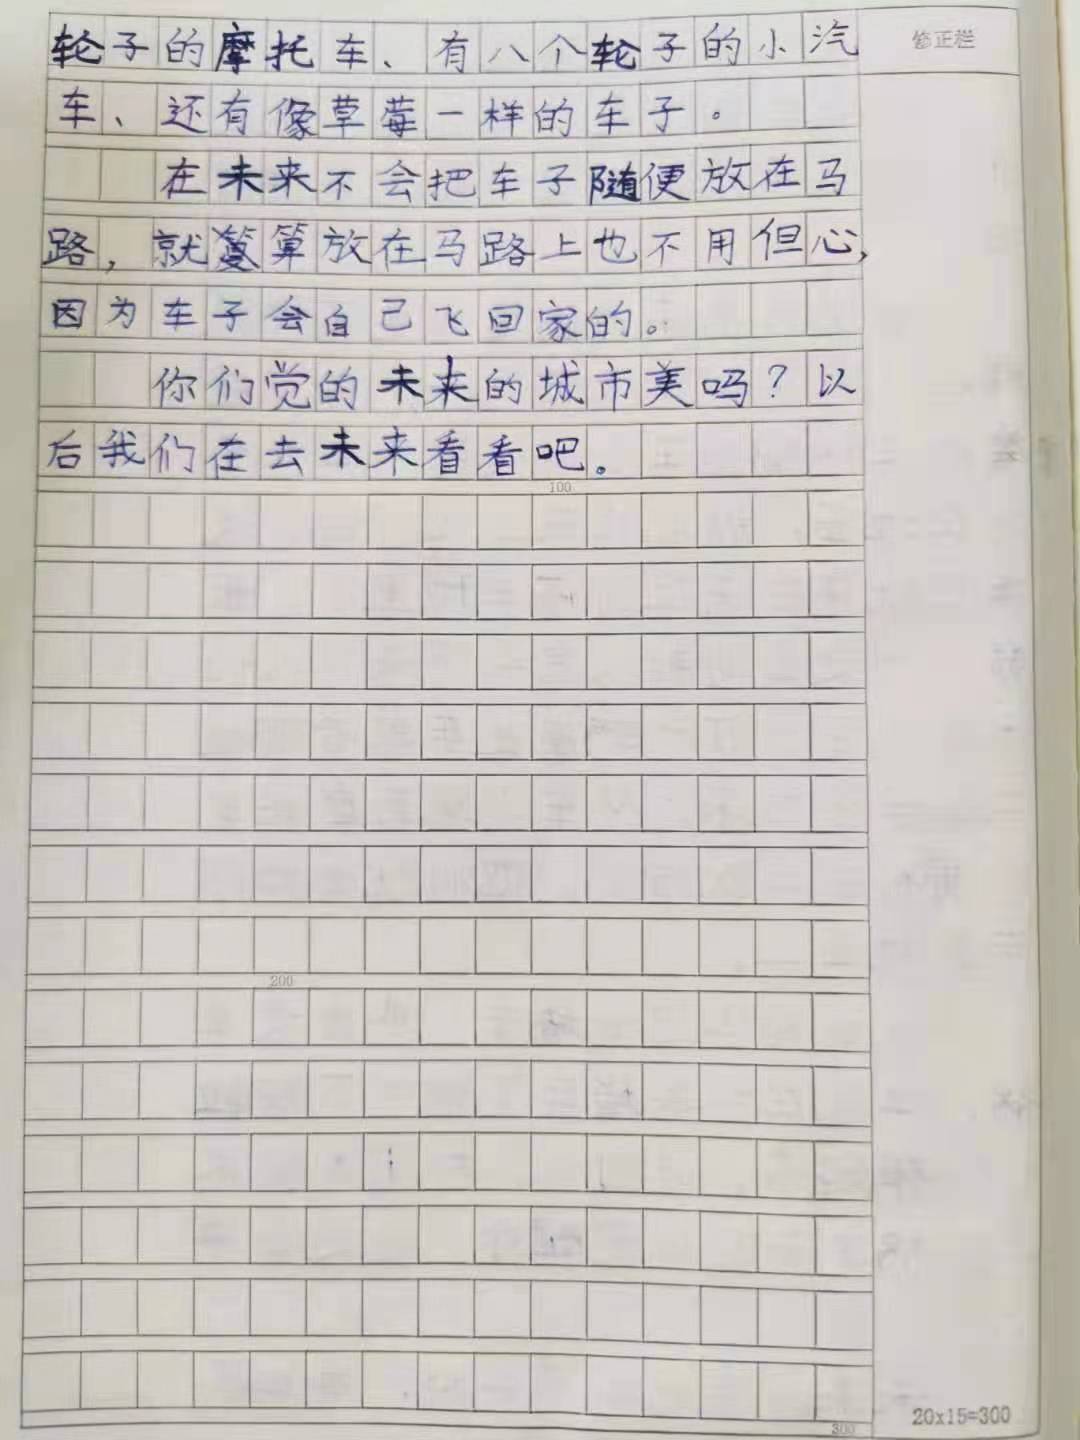 轮子的摩托车、有八个轮子的小汽
修正栏
车、还有像草莓一样的车子。
在未来不会把车子随便放在马
路，就算放在马路上也不用但心，
因为车子会自己飞回家的。
你们觉的未来的城市美吗？以
后我们在去未来看看吧。
100
200
300
20x15=300